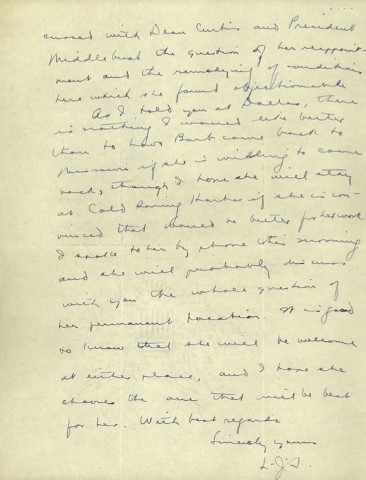 cussed with Dean Curtis and President
Middlebush the question of her reappoint-
ment and the remedying of conditions
here which she found objectionable.
As I told you at Dallas, there
is nothing I would like better
than to have Barb come back to
Missouri if she is willing to come
back, though I hope she will stay
at Cold Spring Harbor if she is con-
vinced that would be better for her work
I spoke to her by phone this morning
and she will probably discuss
with you the whole question of
her permanent location. It is good
to know that she will be welcome
at either place, and I hope she
chooses the one that will be best
for her. With best regards
Sincerely yours
L.J.S.